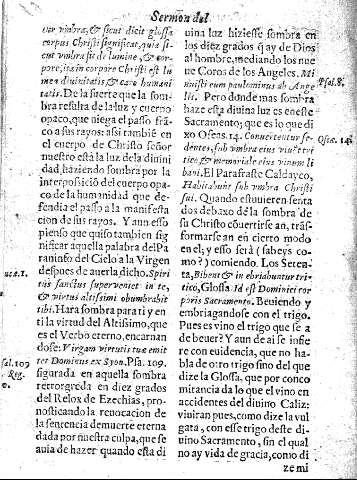 Sermon del
tur vmbra, & sicut dicit glossa
corpus Christi significat, quia si
cut vmbra fit de lumine, & cor-
pore, ita in corpore Christi est lu
men diuinitatis, & caro humani
tatis. De la suerte que la som
bra resulta de la luz y cuerpo
opaco, que niega el passo frã-
co a sus rayos: assi tambiẽ en
el cuerpo de Christo señor
nuestro està la luz dela diuini
dad, haziendo sombra por la
interposiciõ del cuerpo opa-
co de la humanidad que de-
fendia el passo a la manifesta
cion de sus rayos. Y aun esso
pienso que quiso tambien sig
nificar aquella palabra del Pa
raninfo del Cielo a la Virgen
despues de auerla dicho. Spiri
tus sanctus superueniet in te,
& virtus altissimi obumbrabit
tibi. Hara sombra para ti y en
ti la virtud del Altissimo, que
es el Verbo eterno, encarnan
dose: Virgam virtutis tuæ emit
tet Dominus ex Syon. Psa. 109.
figurada en aquella sombra
retrogreda en diez grados
del Relox de Ezechias, pro-
nosticando la reuocacion de
la sentencia de muerte eterna
dada por nuestra culpa, que se
auia de hazer quando esta di
uina luz hiziesse sombra en
los diez grados q̃ ay de Dios
al hombre, mediando los nue
ue Coros de los Angeles. Mi
nuisti eum paulominus ab Ange
lis. Pero donde mas sombra
haze esta diuina luz es en este
Sacramento; que es lo que di
xo Oseas. 14. Conuertentur se-
dentes, sub vmbra eius viuẽt tri
tico, & memoriale eius vinum li
bani. El Parafraste Caldayco,
Habitabunt sub vmbra Christi
sui. Quando estuuieren senta
dos debaxo de la sombra de
su Christo cõuertirse an, tras-
formarse an en cierto modo
en el; y esso serà (sabeys co-
mo?) comiendo. Los Seten-
ta, Bibent & inebriabuntur tri-
tico, Glossa. Id est Dominici cor
poris Sacramento. Beuiendo y
embriagandose con el trigo.
Pues es vino el trigo que se a
de beuer? Y aun de ai se infie
re con euidencia, que no ha-
bla de otro trigo sino del que
dize la Glossa, que por conco
mitancia da lo que el vino en
accidentes del diuino Caliz:
viuiran pues, como dize la vul
gata, con esse trigo deste di-
uino Sacramento, sin el qual
no ay vida de gracia, como di
ze mi
Psal. 8.
Osee. 14.
uc. 1.
sal. 109
Reg.